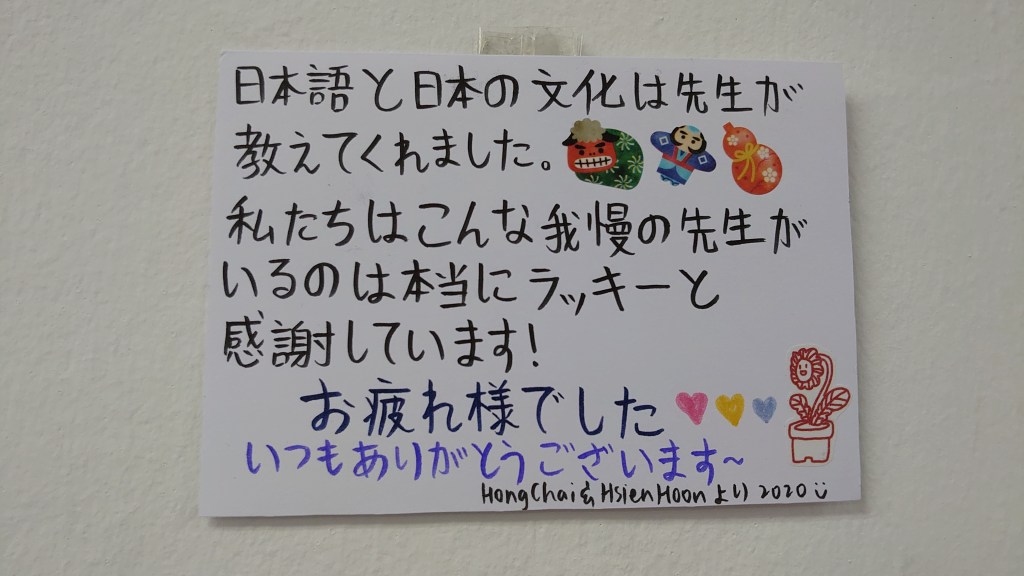 日本語と日本の文化は先生が
教えてくれました。
私たちはこんな我慢の先生が
いるのは本当にラッキーと
感謝しています!
お疲れ様でした
いつもありがとうございます~
HongChai & HsienHoonより 2020